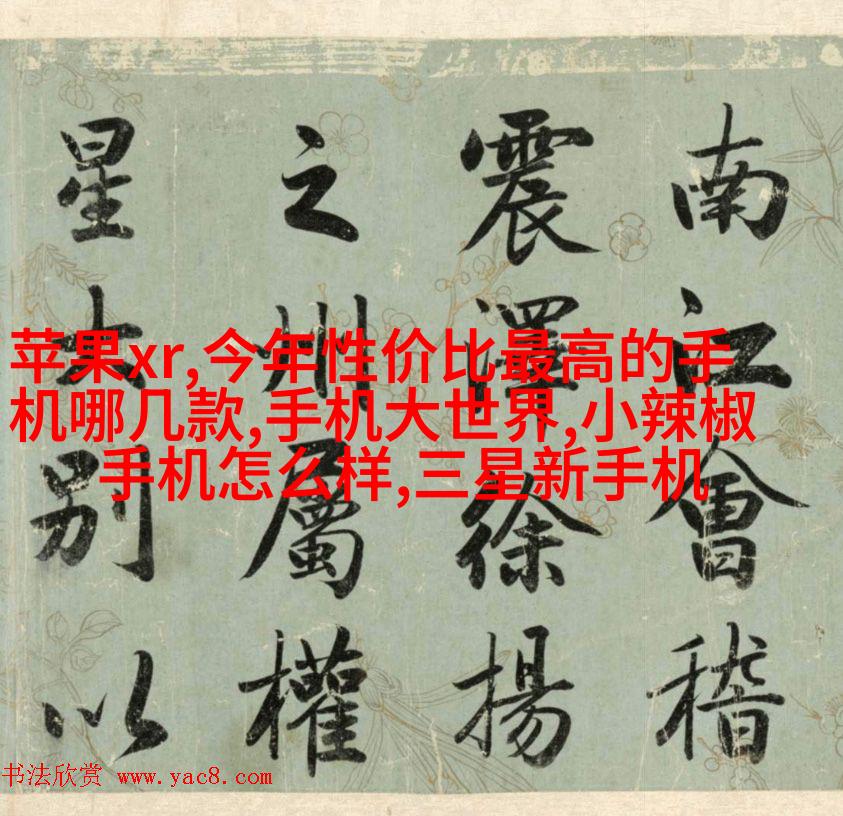 南江會稽
震澤徐揚
之州屬權
星別以
苹果xr,今年性价比最高的手
机哪几款,手机大世界,小辣椒
手机怎么样,三星新手机
书法欣赏 www.yac8.com